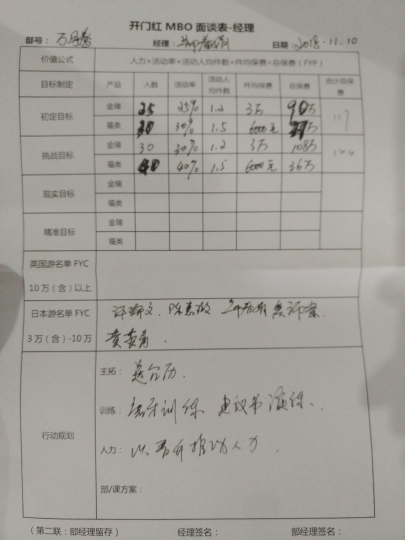 开门红 MBO 面谈表-经理
部号： 经理： 日期：2018.11.10
价值公式 人力×活动率×活动人均件数×件均保费=总保费（FYP）
目标制定 产品 人数 活动率 活动人均件数 件均保费 总保费 合计总保费
初定目标 金瑞 25 25% 1.2 3万 90万 117
福类 30 30% 1.5 6000元 27万
挑战目标 金瑞 30 30% 1.2 3万 108万 144
福类 40 40% 1.5 6000元 36万
现实目标 金瑞
福类
精准目标 金瑞
福类
英国游名单 FYC
10 万（含）以上
日本游名单 FYC
3 万（含）-10 万
行动规划
主拓： 送台历.
训练： 训练 建议书演练.
人力： 推动人力
部/课方案：
（第二联：部经理留存） 经理签名： 部经理签名：